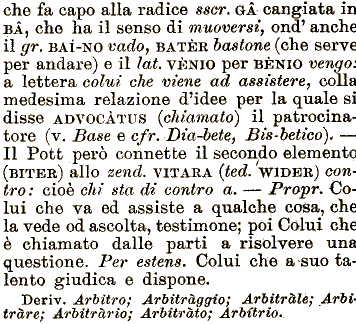 che fa capo alla radice sscr. GÂ cangiata in
BÂ, che ha il senso di muoversi, ond' anche
il gr. BAÍ-NO vado, BATÈR bastone (che serve
per andare) e il lat. VÈNIO per BÈNIO vengo:
a lettera colui che viene ad assistere, colla
medesima relazione d'idee per la quale si
disse ADVOCÀTUS (chiamato) il patrocina-
tore (v. Base e cfr. Dia-bete, Bis-betico). —
Il Pott però connette il secondo elemento
(BITER) allo zend. VITARA (ted. WIDER) con-
tro: cioè chi sta di contro a. — Propr. Co-
lui che va ed assiste a qualche cosa, che
la vede od ascolta, testimone; poi Colui che
è chiamato dalle parti a risolvere una
questione. Per estens. Colui che a suo ta-
lento giudica e dispone.
Deriv. Arbitro; Arbitràggio; Arbitràle; Arbi-
tràre; Arbitràrio; Arbitràto; Arbítrio.